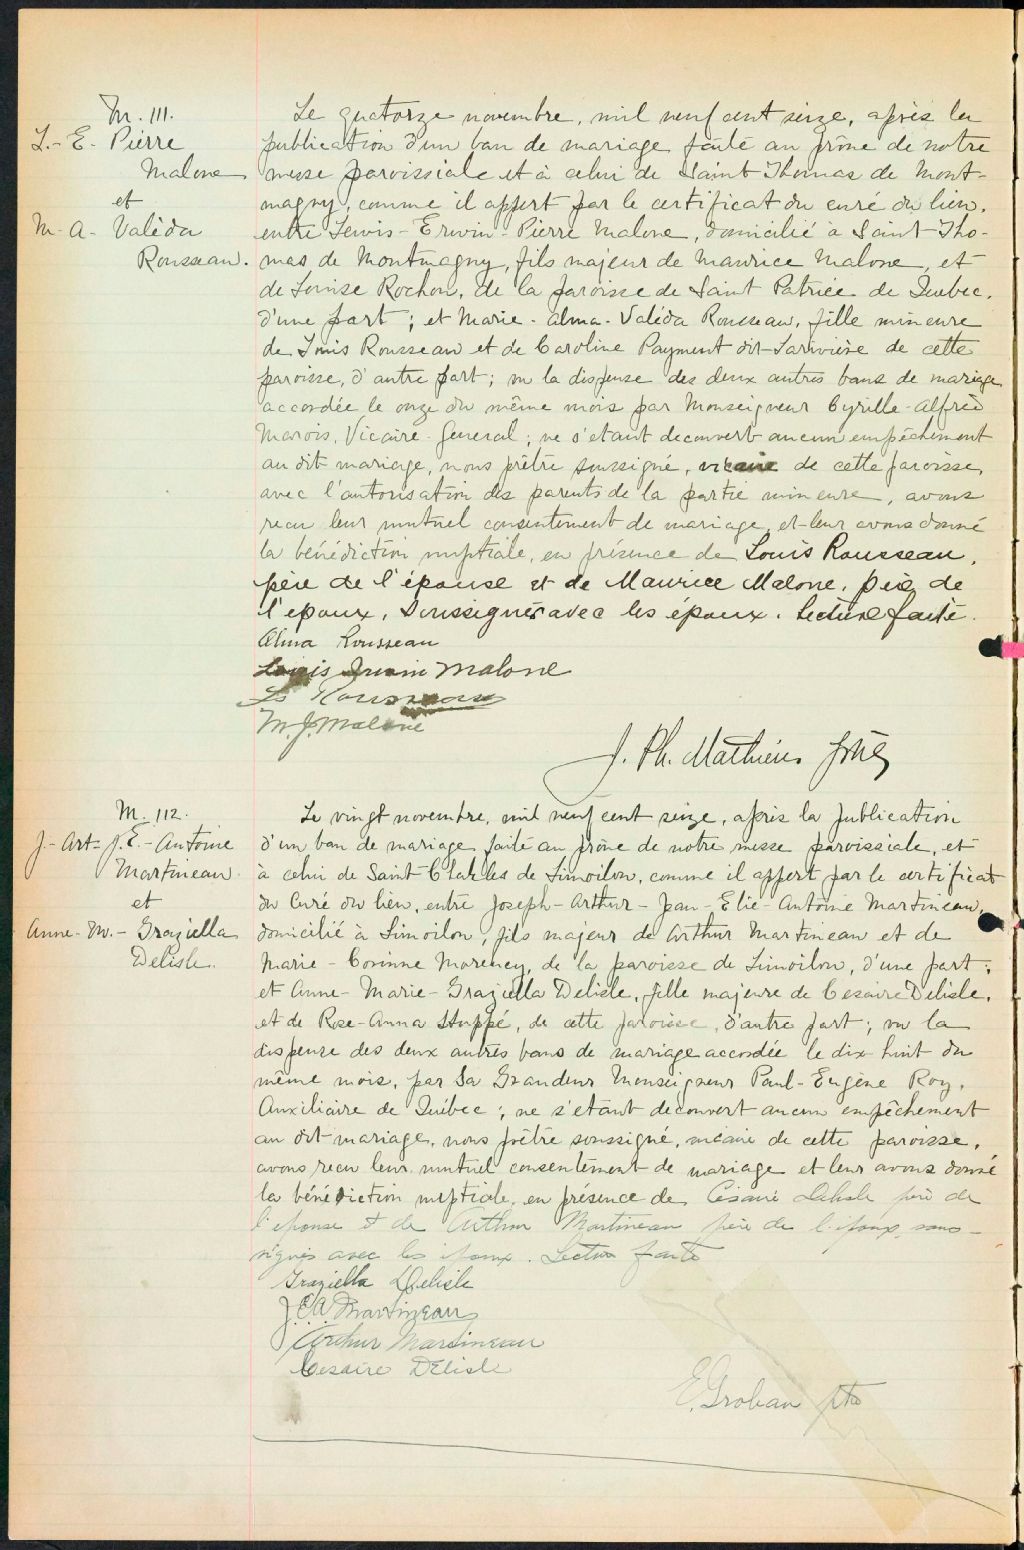 M. 111.
L.-E. Pierre
Malone
et
M.-A. Valéda
Rousseau.
Le quatorze novembre, mil neuf cent seize, après la
publication d'un ban de mariage faite au prône de notre
messe paroissiale et à celui de Saint Thomas de Mont-
magny, comme il appert par le certificat du curé du lieu,
entre Lewis-Erwin-Pierre Malone, domicilié à Saint Tho-
mas de Montmagny, fils majeur de Maurice Malone, et
de Louise Rochon, de la paroisse de Saint Patrice de Québec,
d'une part; et Marie-Alma-Valéda Rousseau, fille mineure
de Louis Rousseau et de Caroline Payment dit-Larivière de cette
paroisse, d'autre part; vu la dispense des deux autres bans de mariage
accordée le onze du même mois par Monseigneur Cyrille-Alfred
Marois, Vicaire-General; ne s'etant decouvert aucun empêchement
au dit mariage, nous prêtre soussigné, vicaire de cette paroisse,
avec l'autorisation des parents de la partie mineure, avons
recu leur mutuel consentement de mariage, et leur avons donné
la bénédiction nuptiale, en présence de Louis Rousseau,
père de l'épouse et de Maurice Malone, père de
l'epoux, soussignés avec les époux. Lecture faite.
Alma Rousseau
Louis Irwin Malone
Ls Rousseau
M. J. Malone
J. Ph. Mathieu Ptre
M. 112.
J.-Art.-J.E.-Antoine
Martineau
et
Anne-M.-Graziella
Delisle.
Le vingt novembre, mil neuf cent seize, après la publication
d'un ban de mariage faite au prône de notre messe paroissiale, et
à celui de Saint Charles de Limoilou, comme il appert par le certificat
du Curé du lieu, entre Joseph-Arthur-Jean-Elie-Antoine Martineau,
domicilié à Limoilou, fils majeur de Arthur Martineau et de
Marie-Corinne Morency, de la paroisse de Limoilou, d'une part;
et Anne-Marie-Graziella Delisle, fille majeure de Cesaire Delisle,
et de Rose-Anna Huppé, de cette paroisse, d'autre part; vu la
dispense des deux autres bans de mariage accordée le dix-huit du
même mois, par Sa Grandeur Monseigneur Paul-Eugène Roy,
Auxiliaire de Québec; ne s'etant decouvert aucun empêchement
au dit mariage, nous prêtre soussigné, vicaire de cette paroisse,
avons recu leur mutuel consentement de mariage et leur avons donné
la bénédiction nuptiale, en présence de Césaire Delisle père de
l'epouse & de Arthur Martineau père de l'epoux, sous-
signés avec les epoux. Lecture faite
Graziella Delisle
J.E.A. Martineau
Arthur Martineau
Cesaire Delisle
E. Groban ptre